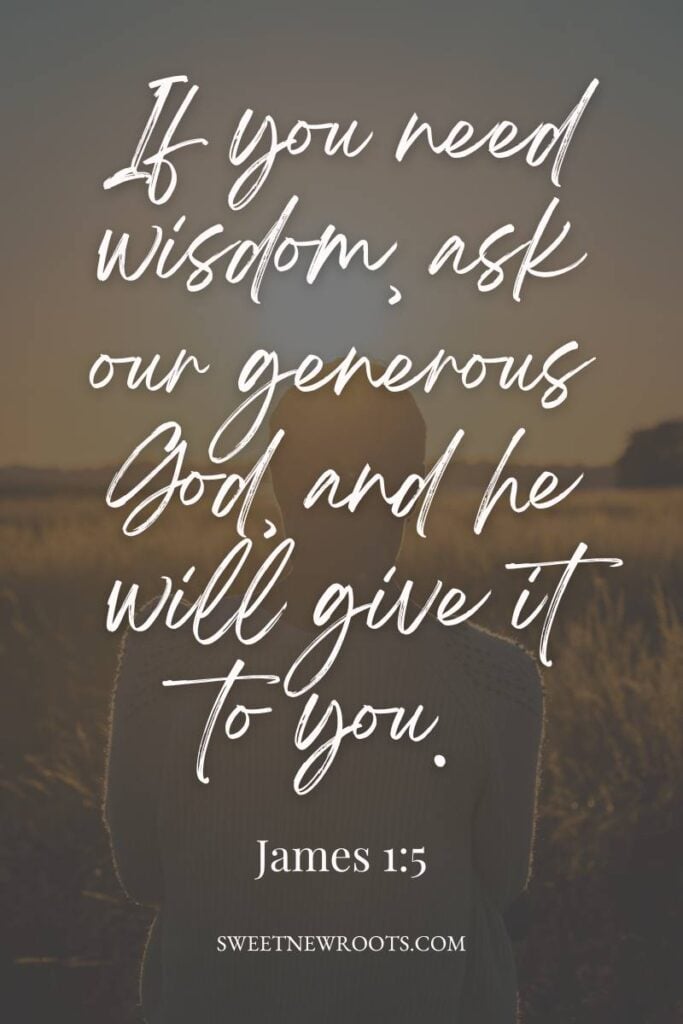 If you need
wisdom, ask
our generous
God, and he
will give it
to you.
James 1:5
SWEETNEWROOTS.COM